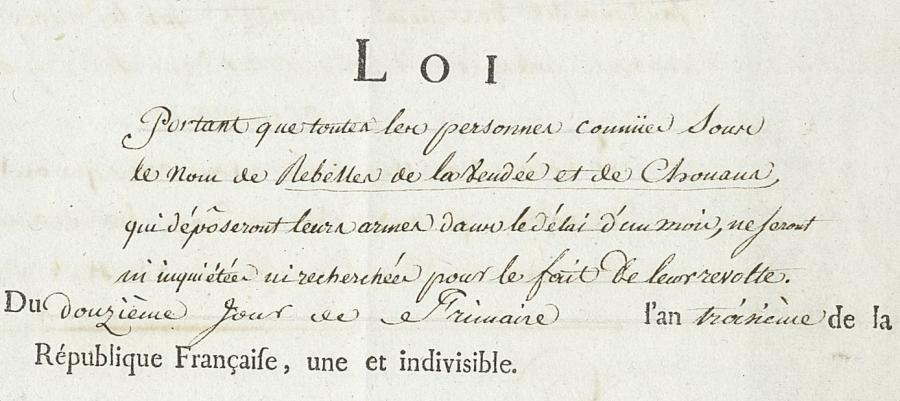 LOI
Portant que toutes les personnes connues Sous
le nom de Rebelles de la Vendée et de Chouans,
qui déposeront leurs armes dans le délai d'un mois, ne seront
ni inquiétés ni recherchés pour le fait de leur revolte.
Du douzième Jour de Frimaire l'an troisième de la
République Françaiſe, une et indivisible.